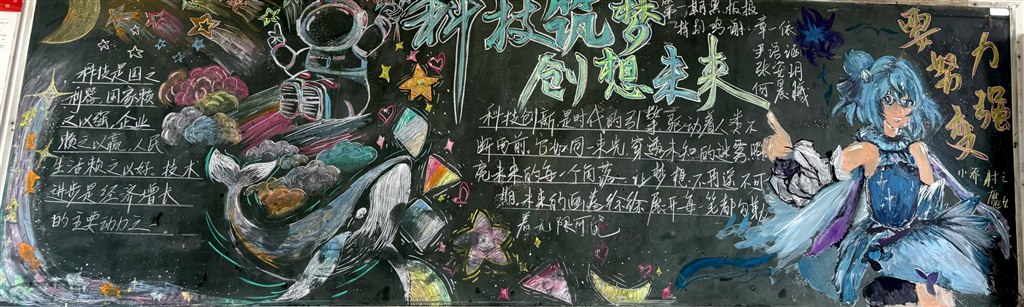 科技筑梦
创想未来
第一期黑板报
特别鸣谢:章一依
张安玥
何晨曦
要努力
变强
科技是国之
利器,国家赖
之以强,企业
赖之以赢,人民
生活赖之以好.技术
进步是经济增长
的主要动力之一
科技创新是时代的引擎,驱动着人类不
断向前.它如同一束光,穿透未知的迷雾,照
亮未来的每一个角落.让梦想不再遥不可
期,未来的画卷徐徐展开每一笔都勾勒
着无限可能